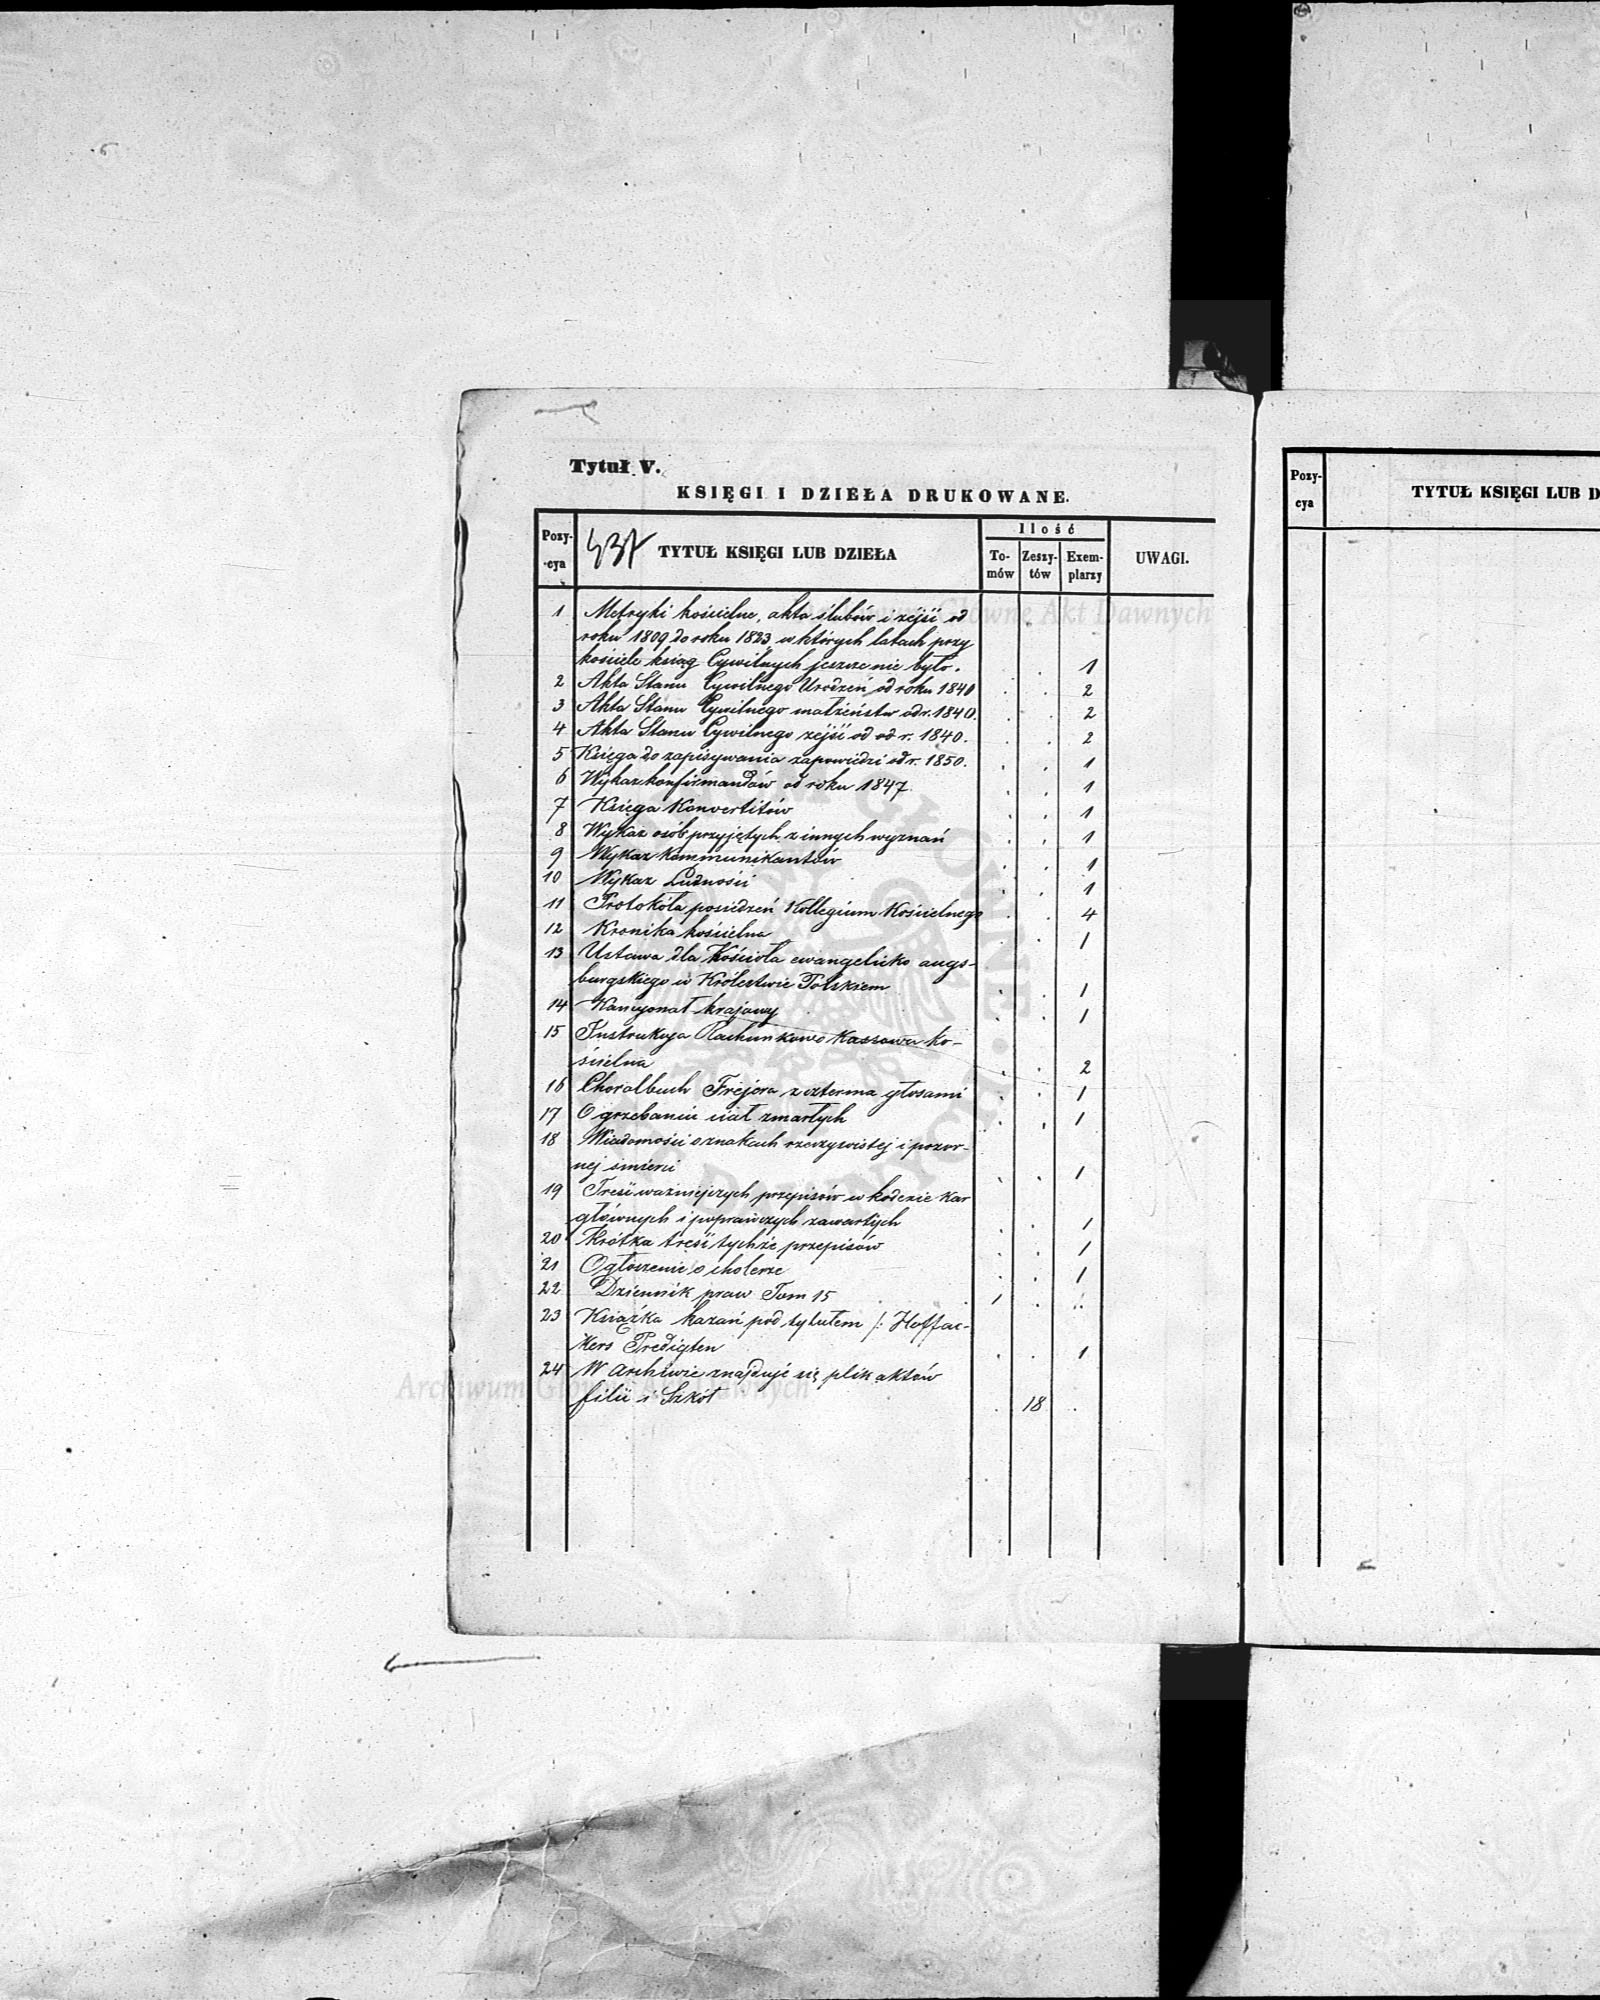 Tytuł V.
KSIĘGI I DZIEŁA DRUKOWANE.
Pozy-
-cya
TYTUŁ KSIĘGI LUB DZIEŁA
Ilość
To-
mów
Zeszy-
tów
Exem-
plarzy
UWAGI.
1 Metryki kościelne, akta ślubów i zejść od
roku 1809 do roku 1823, w których latach przy
kościele ksiąg Cywilnych jeszcze nie było. 1
2 Akta Stanu Cywilnego Urodzeń od roku 1840 2
3 Akta Stanu Cywilnego małżeństw od r. 1840. 2
4 Akta Stanu Cywilnego zejść od od r. 1840. 2
5 Księga do zapisywania zapowiedzi od r. 1850. 1
6 Wykaz konfirmandów od roku 1847. 1
7 Księga Konvertitów 1
8 Wykaz osób przyjętych z innych wyznań 1
9 Wykaz Kommunikantów 1
10 Wykaz Ludności 1
11 Protokóła posiedzeń Kollegium Kościelnego 4
12 Kronika kościelna 1
13 Ustawa dla Kościoła ewangelicko augs-
burgskiego w Królestwie Polskiem 1
14 Kancyonał krajowy 1
15 Instrukcya Rachunkowo Kassowa ko-
ścielna 2
16 Choralbuch Frejera z czterma głosami 1
17 O grzebaniu ciał zmarłych 1
18 Wiadomości o znakach rzeczywistej i pozor-
nej śmierci 1
19 Treść ważniejszych przepisów w kodexie Kar
głównych i poprawczych zawartych 1
20 Krótka treść tychże przepisów 1
21 Ogłoszenie o cholerze 1
22 Dziennik praw Tom 15 1
23 Książka kazań pod tytułem /: Hoffac-
kers Predigten 1
24 W Archiwie znajduje się plik aktów
filii i Szkół 18
Pozy-
cya
TYTUŁ KSIĘGI LUB D
Archiwum Główne Akt Dawnych
Archiwum Główne Akt Dawnych